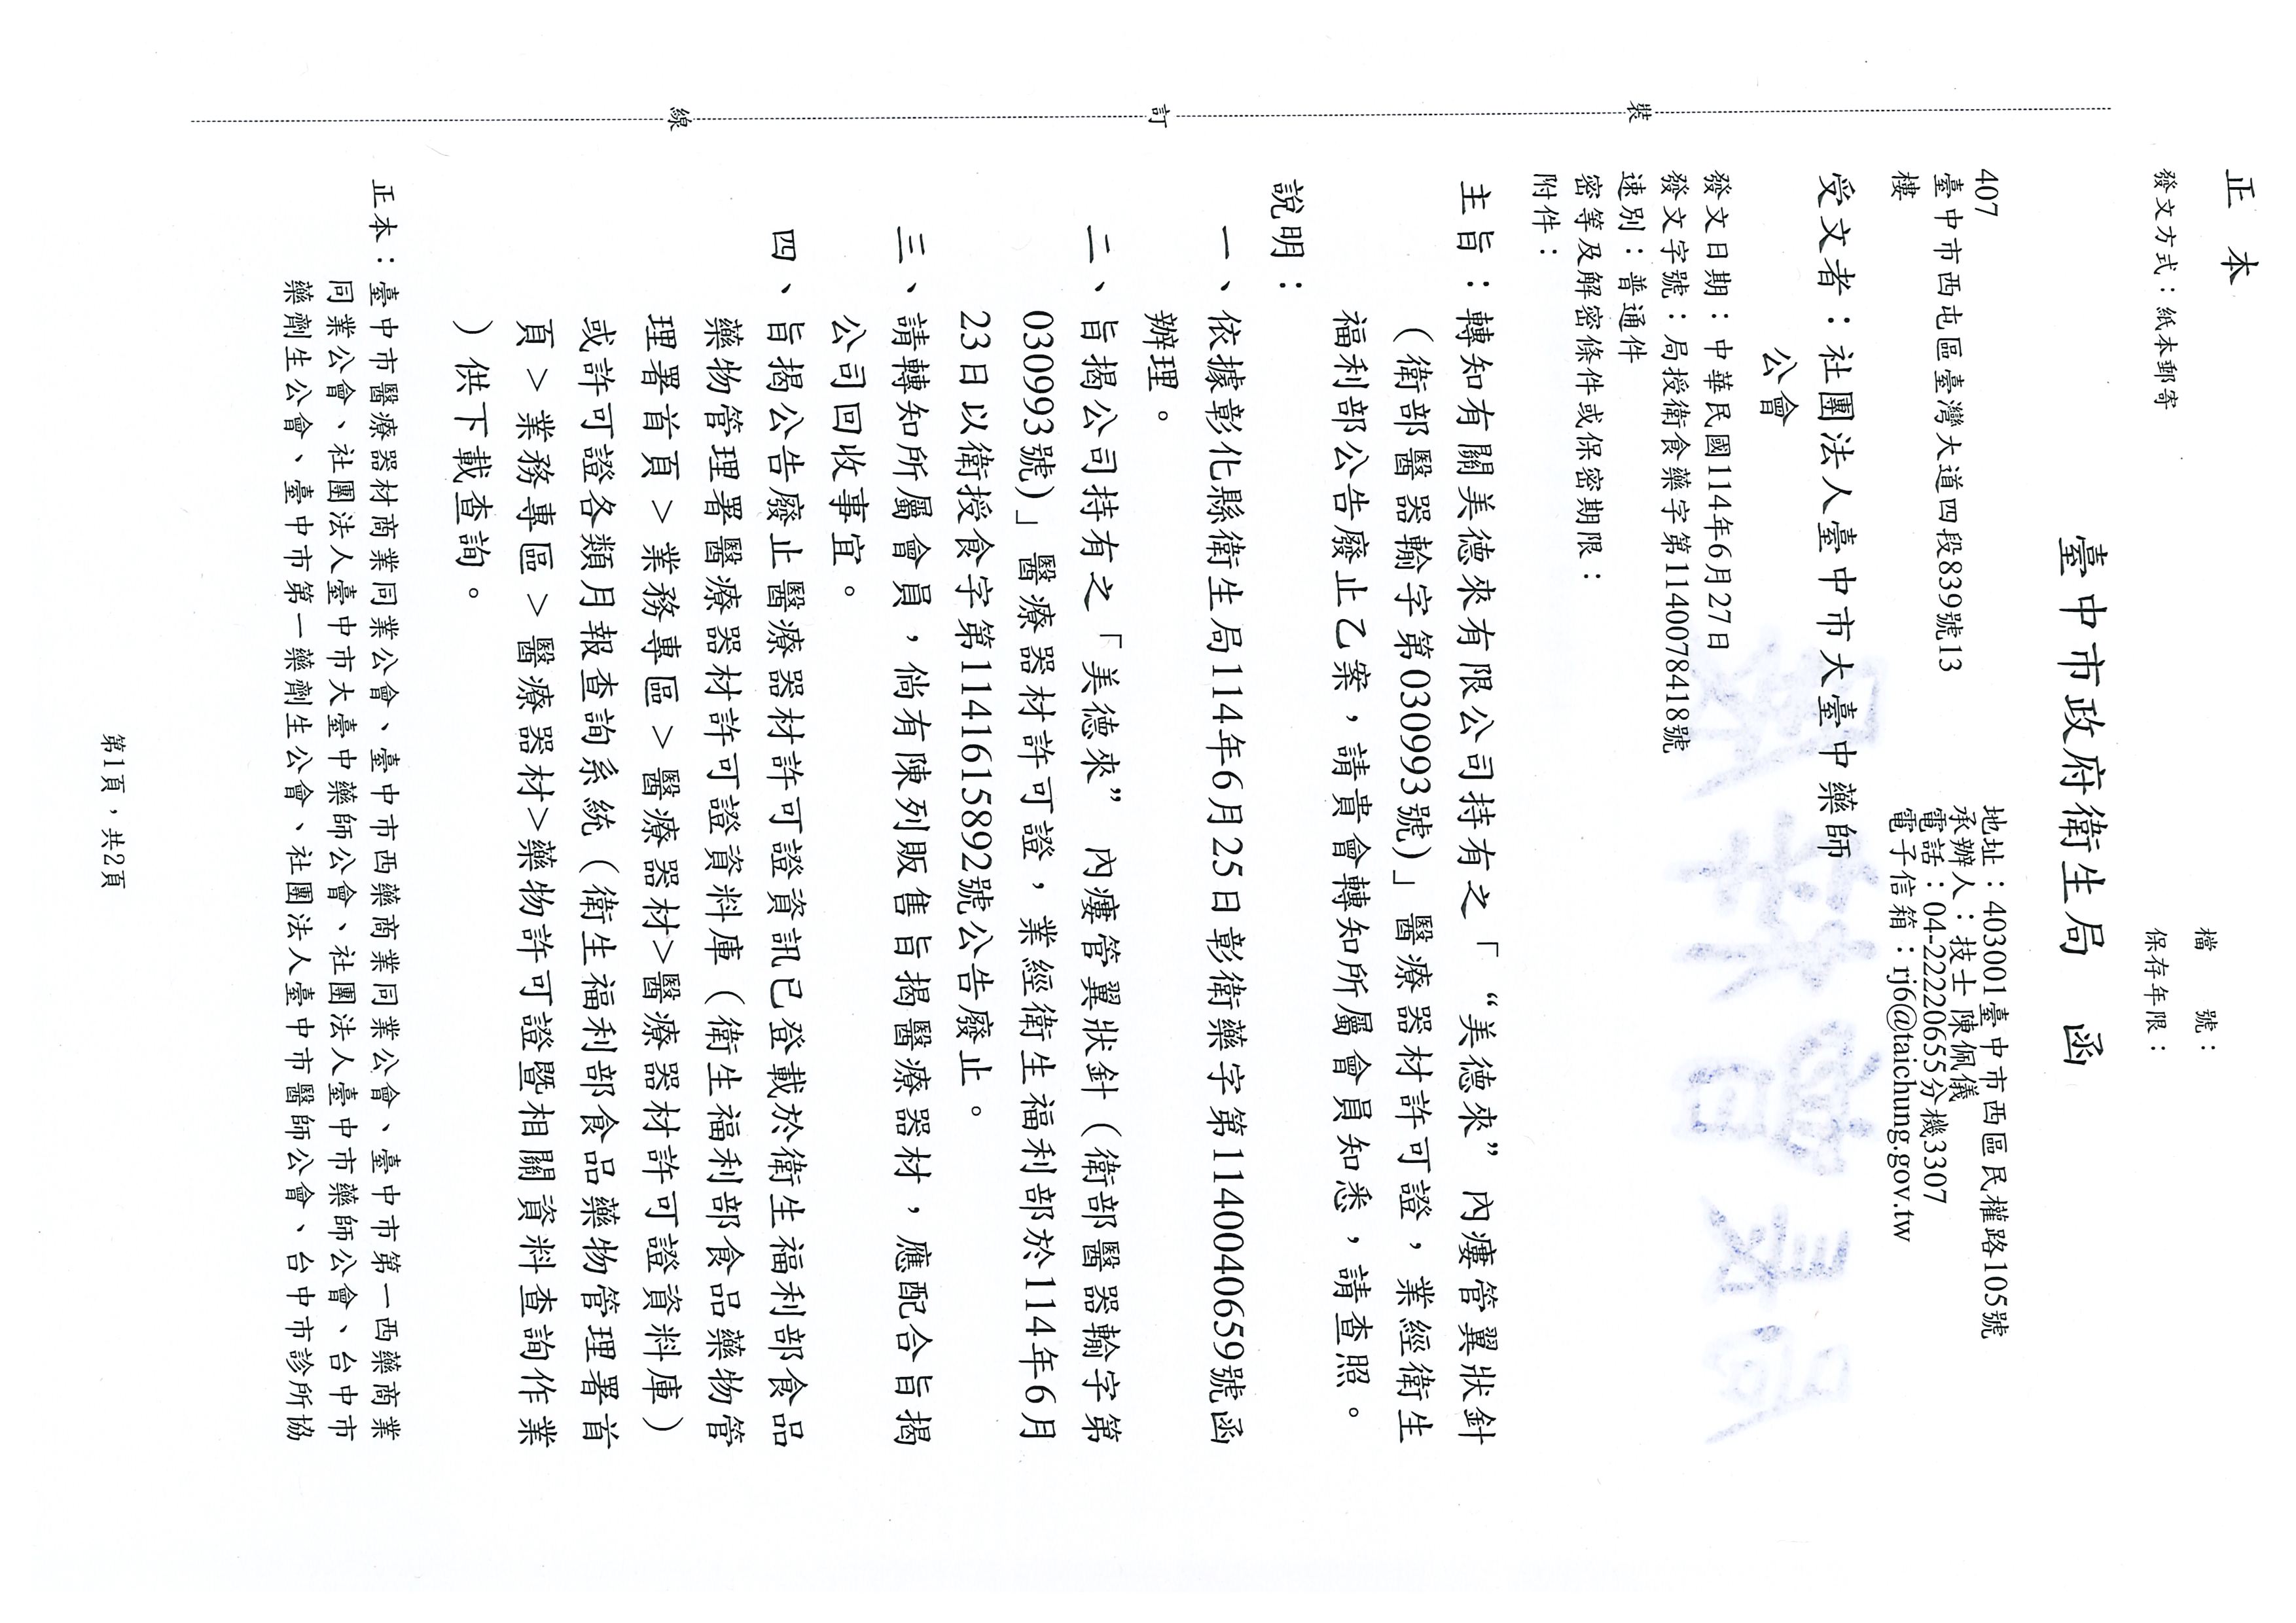 正本
發文方式：紙本郵寄
檔　　號：
保存年限：
臺中市政府衛生局　函
地址：403001臺中市西區民權路105號
承辦人：技士 陳佩儀
電話：04-22220655分機3307
電子信箱：rj6@taichung.gov.tw
407
臺中市西屯區臺灣大道四段839號13
樓
受文者：社團法人臺中市大臺中藥師
公會
發文日期：中華民國114年6月27日
發文字號：局授衛食藥字第1140078418號
速別：普通件
密等及解密條件或保密期限：
附件：
主旨：轉知有關美德來有限公司持有之「 “美德來” 內瘻管翼狀針
（衛部醫器輸字第030993號）」醫療器材許可證，業經衛生
福利部公告廢止乙案，請貴會轉知所屬會員知悉，請查照。
說明：
一、依據彰化縣衛生局114年6月25日彰衛藥字第1140040659號函
辦理。
二、旨揭公司持有之「美德來” 內瘻管翼狀針（衛部醫器輸字第
030993號）」醫療器材許可證，業經衛生福利部於114年6月
23日以衛授食字第1141615892號公告廢止。
三、請轉知所屬會員，倘有陳列販售旨揭醫療器材，應配合旨揭
公司回收事宜。
四、旨揭公告廢止醫療器材許可證資訊已登載於衛生福利部食品
藥物管理署醫療器材許可證資料庫（衛生福利部食品藥物管
理署首頁 > 業務專區 > 醫療器材>醫療器材許可證資料庫）
或許可證各類月報查詢系統（衛生福利部食品藥物管理署首
頁 > 業務專區 > 醫療器材>藥物許可證暨相關資料查詢作業
）供下載查詢。
正本：臺中市醫療器材商業同業公會、臺中市西藥商業同業公會、臺中市第一西藥商業
同業公會、社團法人臺中市大臺中藥師公會、社團法人臺中市藥師公會、台中市
藥劑生公會、臺中市第一藥劑生公會、社團法人臺中市醫師公會、台中市診所協
第1頁，共2頁
裝
訂
線